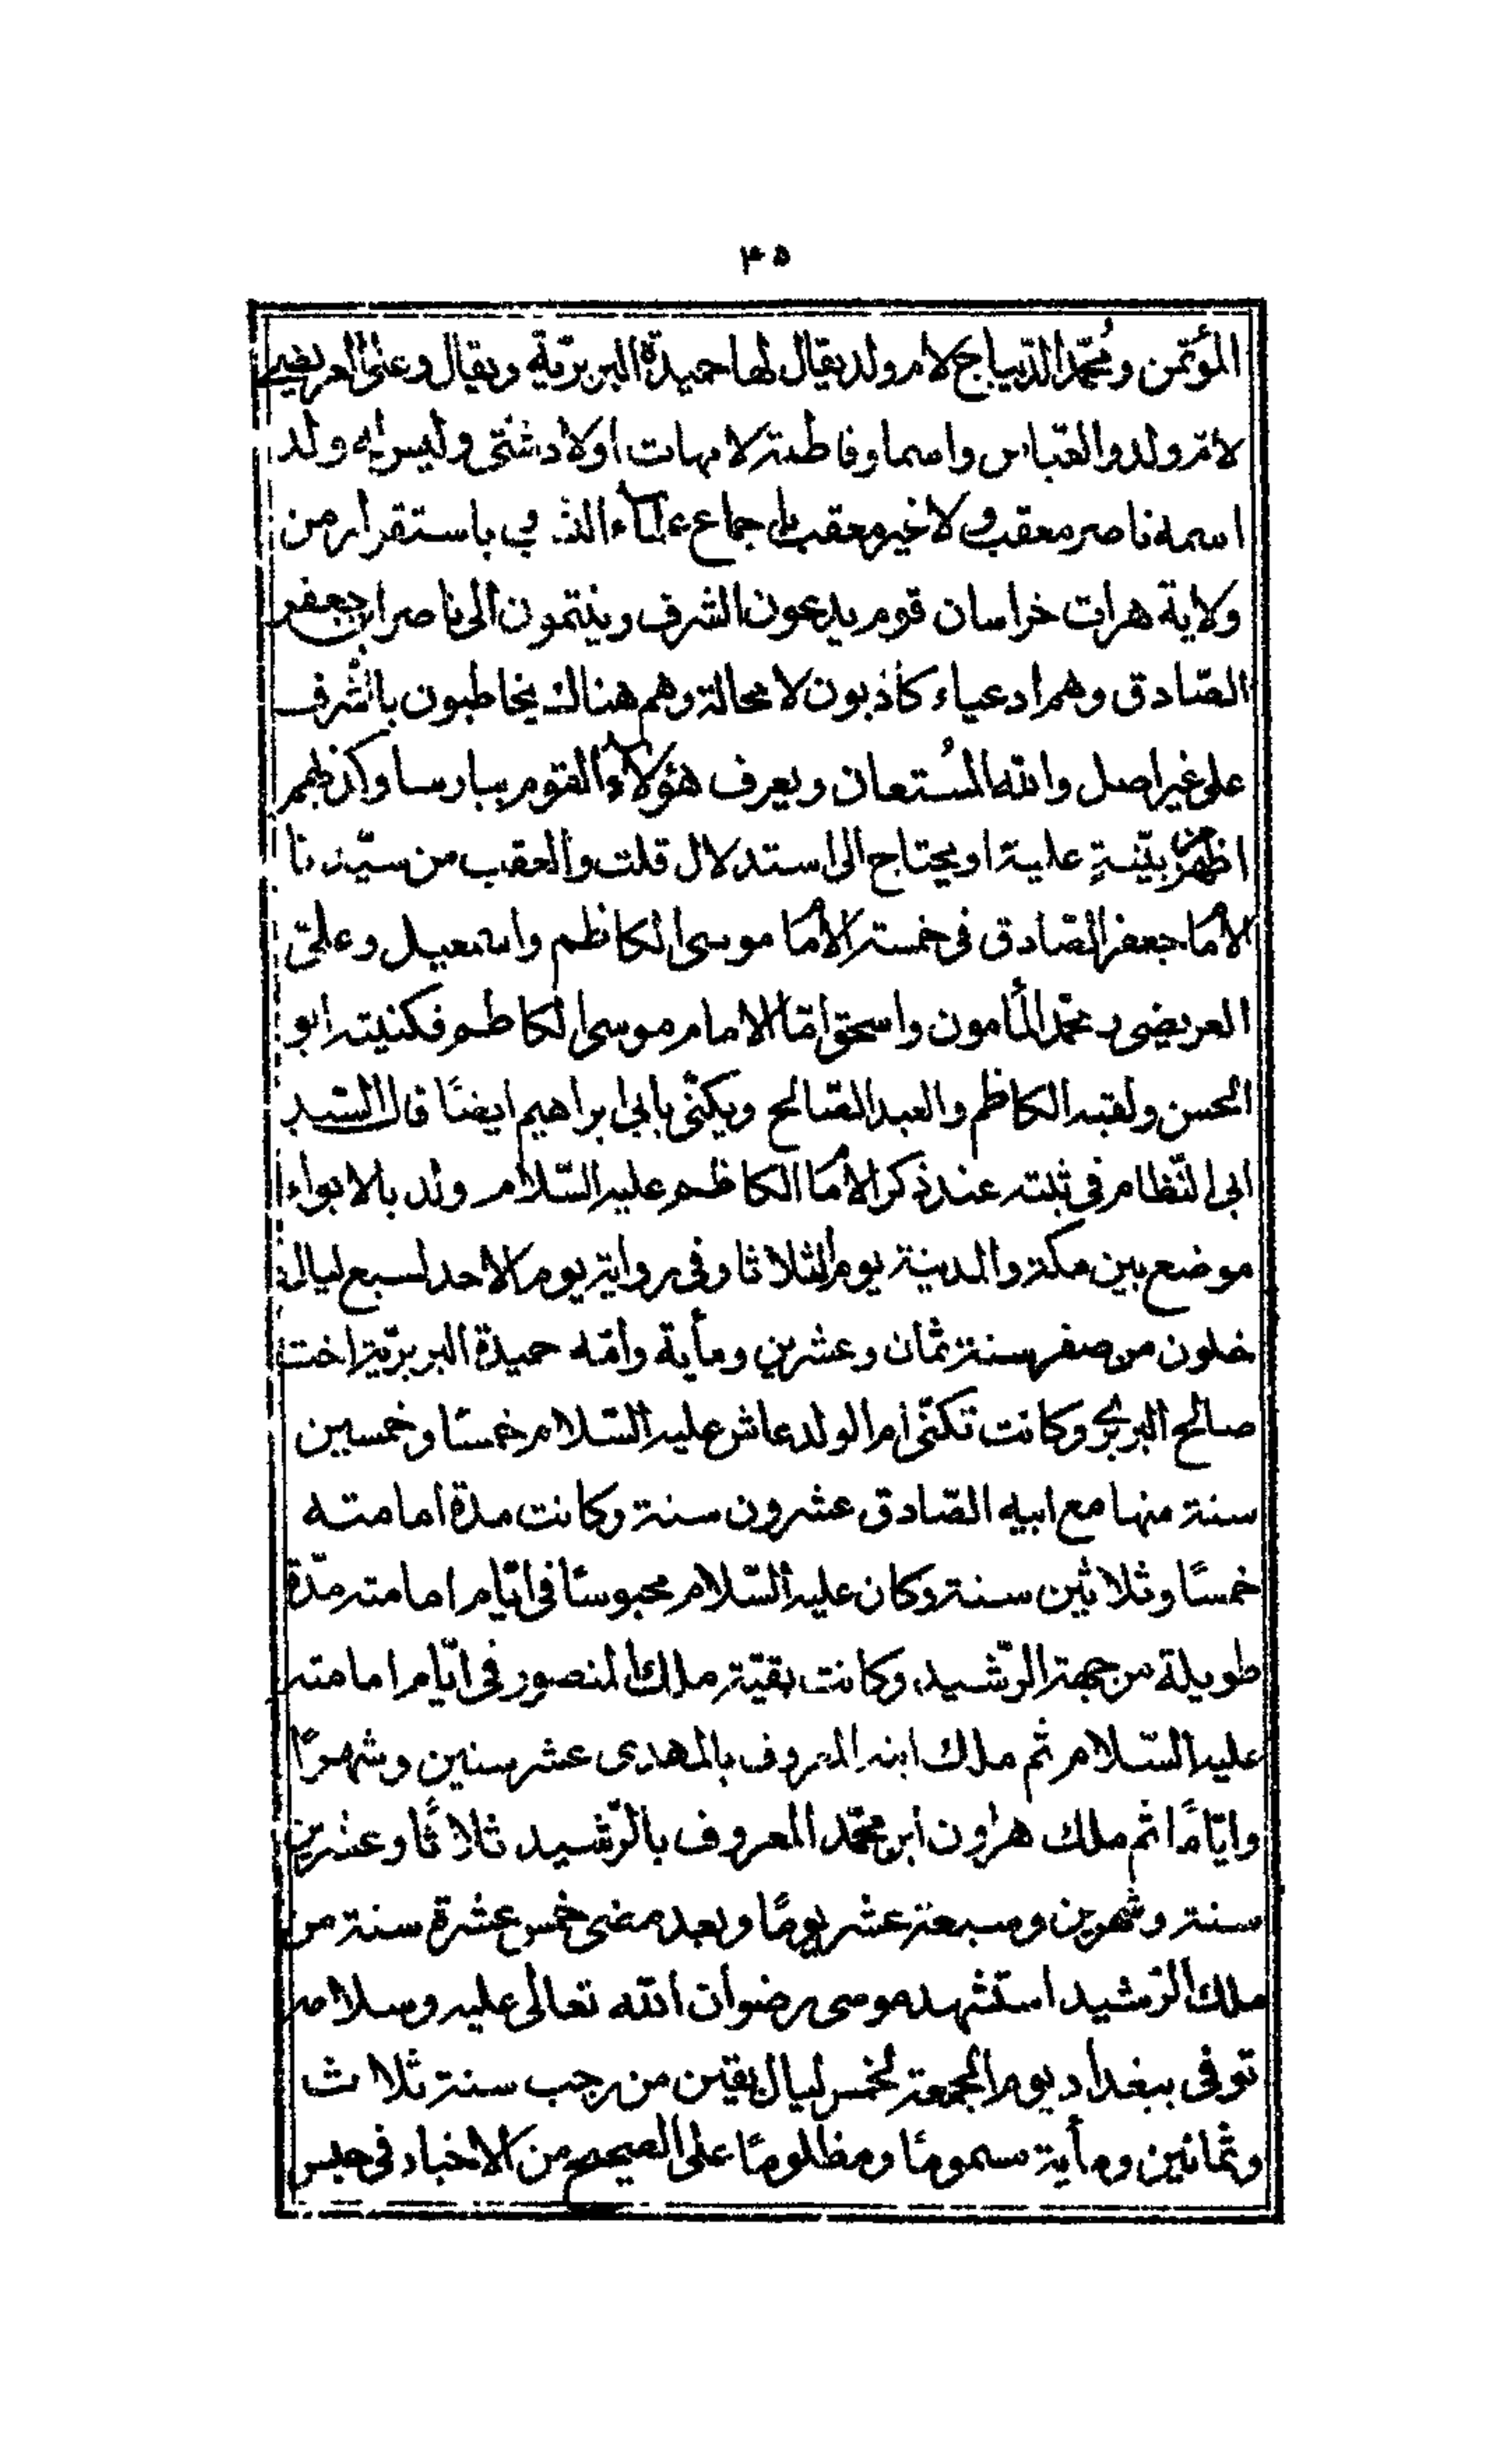 ٣٥
المؤتمن ومُحمّد الدّيباج لام ولد يقال لها حميدة البربرّية ويقال وعلىّ العريضى
لامّ ولد والعبّاس واسما وفاطمة لامهات اولاد شتّى وليس له ولد
اسمه ناصر معقب ولا غير معقب باجماع علماء النسب باستقرار من
ولاية هرات خراسان قوم يدعون الشرف وينتمون الى ناصر ابن جعفر
الصّادق وهم ادعياء كاذبون لا محالة وهم هناك يخاطبون بالشّرف
على غير اصل والله المُستعان ويعرف هؤلاء القوم ببارسا وكذبهم
اظهر من بيّنةٍ علية او يحتاج الى استدلال قلت والعقب من سيّدنا
الامام جعفر الصّادق فى خمسة الامام موسى الكاظم واسمعيل وعلىّ
العريضى ومحمّد المأمون واسحق امّا الامام موسى الكاظم فكنيته ابو
الحسن ولقبه الكاظم والعبد الصّالح ويكنّى بابى ابراهيم ايضًا قال السّيد
ابى النّظام فى ثبته عند ذكر الامام الكاظم عليه السّلام ولد بالابواء
موضع بين مكة والمدينة يوم الثلاثا وفى رواية يوم الاحد لسبع ليال
خلون من صفر سنة ثمان وعشرين ومأية وامّه حميدة البربريّة اخت
صالح البربرى وكانت تكنّى ام الولد عاش عليه السّلام خمسًا وخمسين
سنة منها مع ابيه الصّادق عشرون سنة وكانت مدة امامته
خمسًا وثلاثين سنة وكان عليه السّلام محبوسًا فى ايّام امامته مدّة
طويلة من جهة الرّشيد وكانت بقيّة ملك المنصور فى ايّام امامته
عليه السّلام ثم ملك ابنه المعروف بالمهدى عشر سنين وشهرًا
وايّامًا ثم ملك هارون ابن محمّد المعروف بالرّشيد ثلاثًا وعشرين
سنة وشهرين وسبعة عشر يومًا وبعد مضى خمس عشرة سنة من
ملك الرّشيد استشهد موسى رضوان الله تعالى عليه وسلامه
توفى ببغداد يوم الجمعة لخمس ليال بقين من رجب سنة ثلاث
وثمانين ومأية مسمومًا ومظلومًا على الصحيح من الاخبار فى حبس